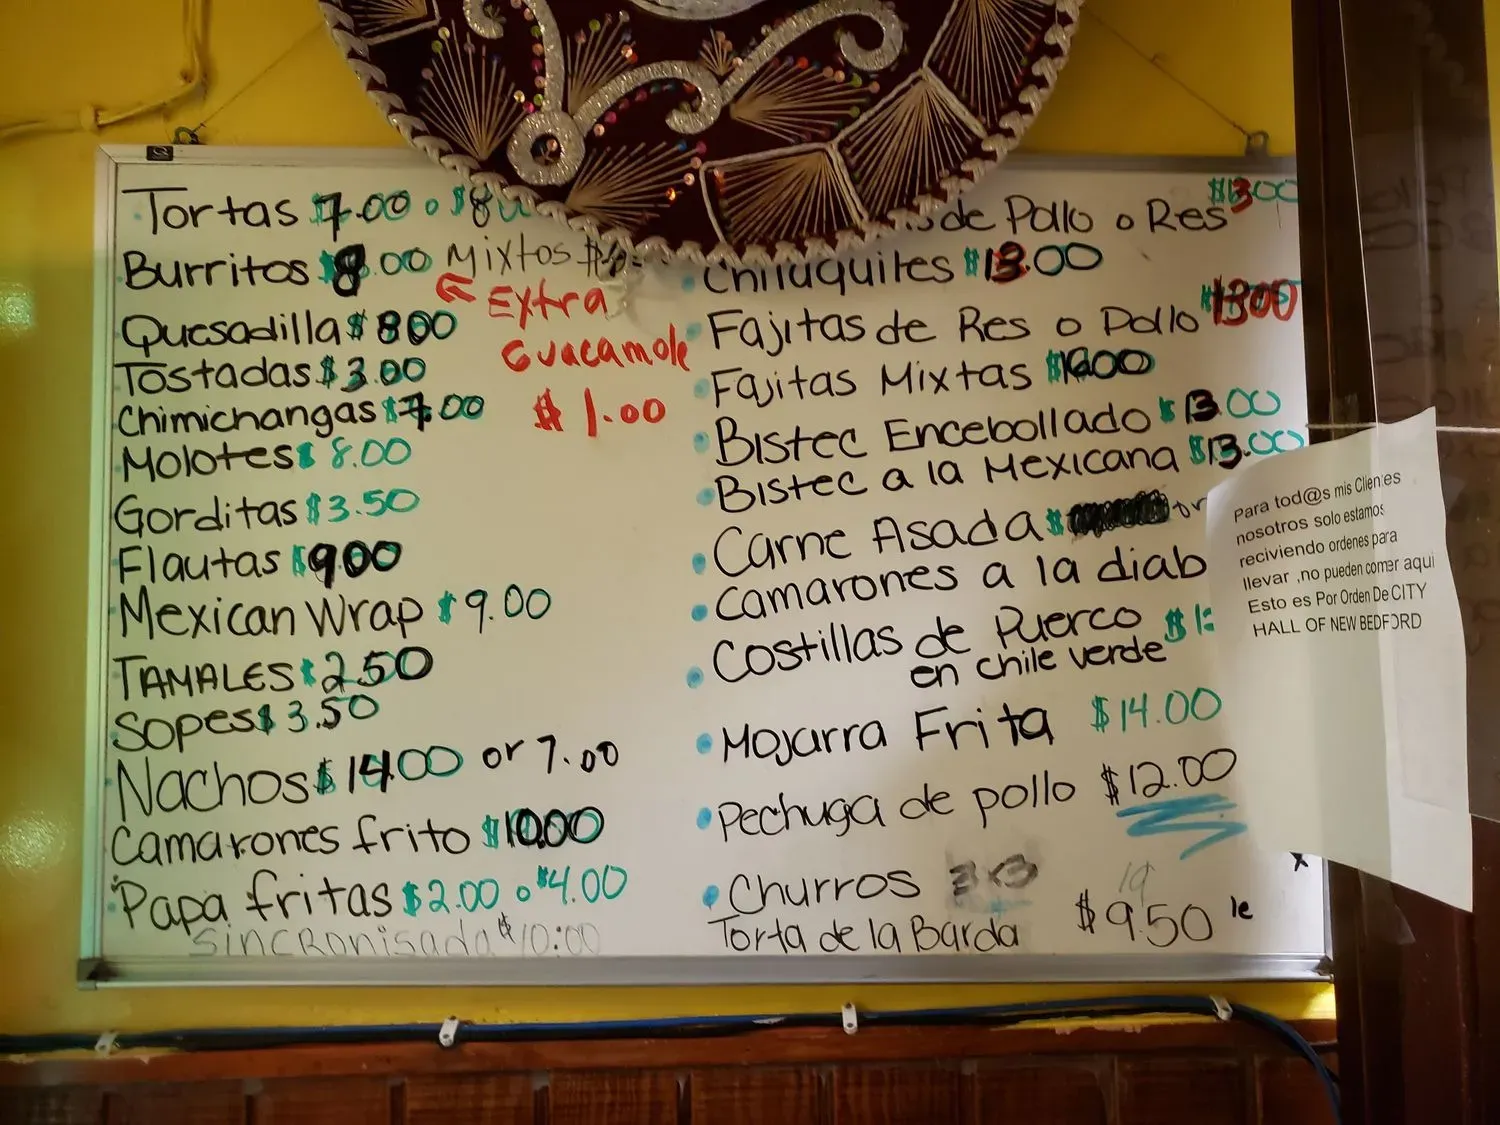 Tortas $7.00 o $8
Burritos $8.00 Mixtos
Extra
Guacamole
$1.00
Quesadilla $8.00
Tostadas $3.00
Chimichangas $7.00
Molotes $8.00
Gorditas $3.50
Flautas $9.00
Mexican Wrap $9.00
TAMALES $2.50
Sopes $3.50
Nachos $14.00 or 7.00
Camarones frito $10.00
Papa fritas $2.00 o $4.00
Sincronisada $10:00
de Pollo o Res $13.00
Chilaquiles $13.00
Fajitas de Res o Pollo $13.00
Fajitas Mixtas $16.00
Bistec Encebollado $13.00
Bistec a la Mexicana $13.00
Carne Asada $
Camarones a la diab
Costillas de Puerco $1
en chile verde
Mojarra Frita $14.00
Pechuga de pollo $12.00
Churros 3x3
Torta de la Barda $9.50
Para tod@s mis Clientes
nosotros solo estamos
reciviendo ordenes para
llevar ,no pueden comer aqui
Esto es Por Orden De CITY
HALL OF NEW BEDFORD